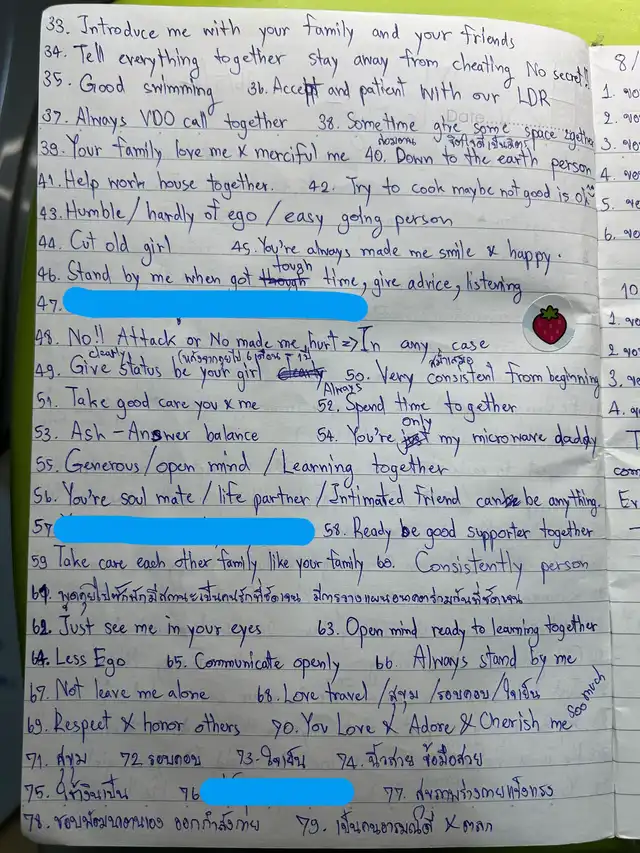 33. Introduce me with your family and your friends
34. Tell everything together stay away from cheating No secret!!
35. Good swimming 36. Accept and patient with our LDR
Date
37. Always VDO call together 38. Sometime give some space together
39. Your family love me x merciful me 40. Down to the earth person
41. Help work house together. 42. Try to cook maybe not good is ok
43. Humble / hardly of ego / easy going person
44. Cut old girl 45. You're always made me smile x happy.
46. Stand by me when got though tough time, give advice, listening
47.
48. No!! Attack or No made me hurt => In any case
49. Give clearly status be your girl clearly 50. Very consistent from beginning
สม่ำเสมอ
51. Take good care you x me 52. Always Spend time together
53. Ash-Answer balance 54. You're just only my microwave daddy
55. Generous / open mind / Learning together
56. You're soul mate / life partner / Intimated friend can be be anything.
57 58. Ready be good supporter together
59 Take care each other family like your family 60. Consistently person
61. พูดคุยไปซักพักมีสถานะเป็นคนรักที่ชัดเจน มีการวางแผนอนาคตร่วมกันที่ชัดเจน
62. Just see me in your eyes 63. Open mind ready to learning together
64. Less Ego 65. Communicate openly 66. Always stand by me
67. Not leave me alone 68. Love travel / สุขุม / รอบคอบ / ใจเย็น
69. Respect x honor others 70. You Love x Adore x Cherish me soo much
71. สุขุม 72 รอบคอบ 73. ใจเย็น 74. นิ้วสวย ข้อมือสวย
75. ใช้เงินเป็น 76 77. สุขภาพร่างกายแข็งแรง
78. ชอบพัฒนาตนเอง ออกกำลังกาย 79. เป็นคนอารมณ์ดี x ตลก
8/
1.
2.
3.
4.
5.
6.
10
1.
2.
3.
4.
T
com
Ex